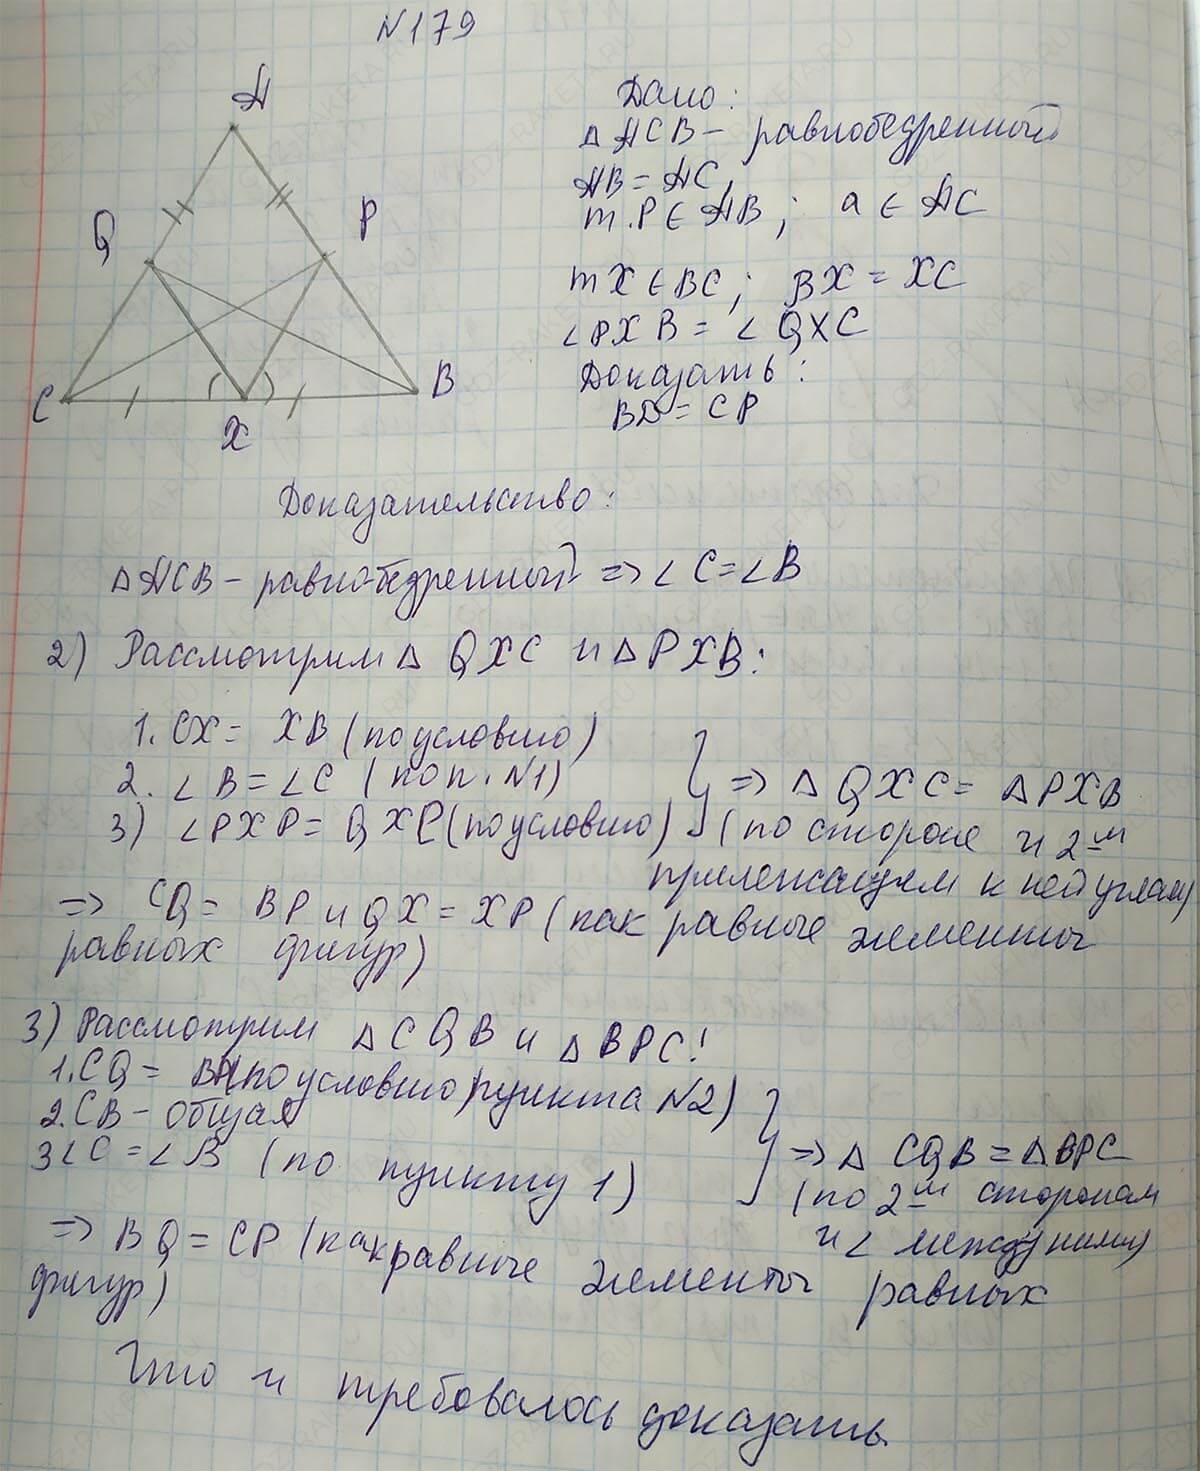 N179
A
Q
P
C
B
X
Дано:
△ ACB - равнобедренный
AB = AC
т. P ∈ AB; a ∈ AC
т X ∈ BC; BX = XC
∠PXB = ∠QXC
Доказать:
BD = CP
Доказательство:
△ ACB - равнобедренный => ∠C = ∠B
2) Рассмотрим △ QXC и △ PXB:
1. CX = XB (по условию)
2. ∠B = ∠C (по п. N1)
3) ∠PXP = QXC (по условию)
=> △ QXC = △ PXB
(по стороне и 2-м
прилежащем к ней углам)
=> CQ = BP и QX = XP (как равные элементы
равных фигур)
3) Рассмотрим △ CQB и △ BPC!
1. CQ = BP (по условию пункта N2)
2. CB - общая
3 ∠C = ∠B (по пункту 1)
=> △ CQB = △ BPC
(по 2-м сторонам
и ∠ между ними)
=> BQ = CP (как равные элементы равных
фигур)
Что и требовалось доказать.